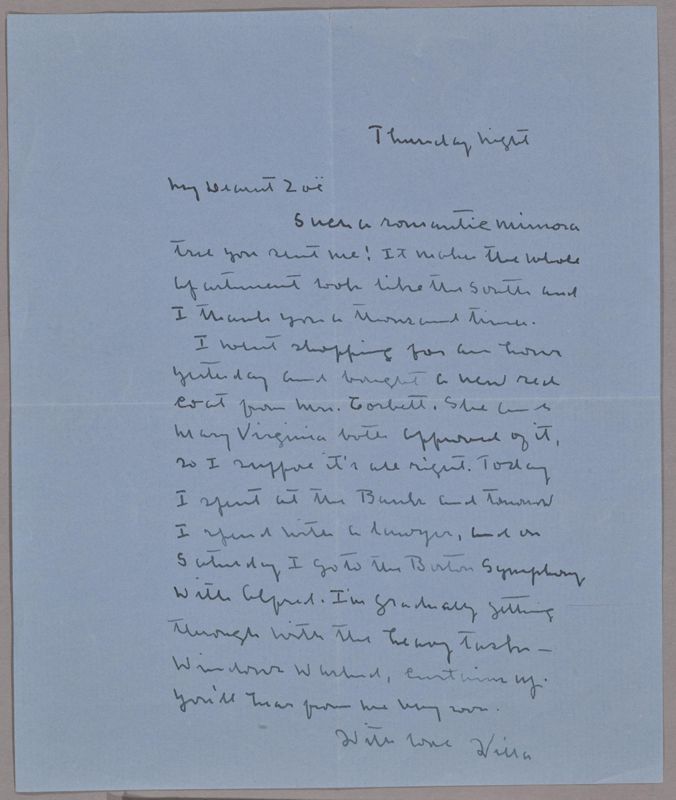 Thursday Night
My Dearest Zoë
Such a romantic mimosa
tree you sent me! It makes the whole
apartment look like the South and
I thank you a thousand times.
I went shopping for an hour
yesterday and bought a new red
coat from Mrs. Corbett. She and
Mary Virginia both approved of it,
so I suppose it's all right. Today
I spent at the Bank and tomorrow
I spend with a lawyer, and on
Saturday I go to the Boston Symphony
with Alfred. I'm gradually getting
through with the heavy tasks —
Windows washed, curtains up.
You'll hear from me very soon.
With love Willa